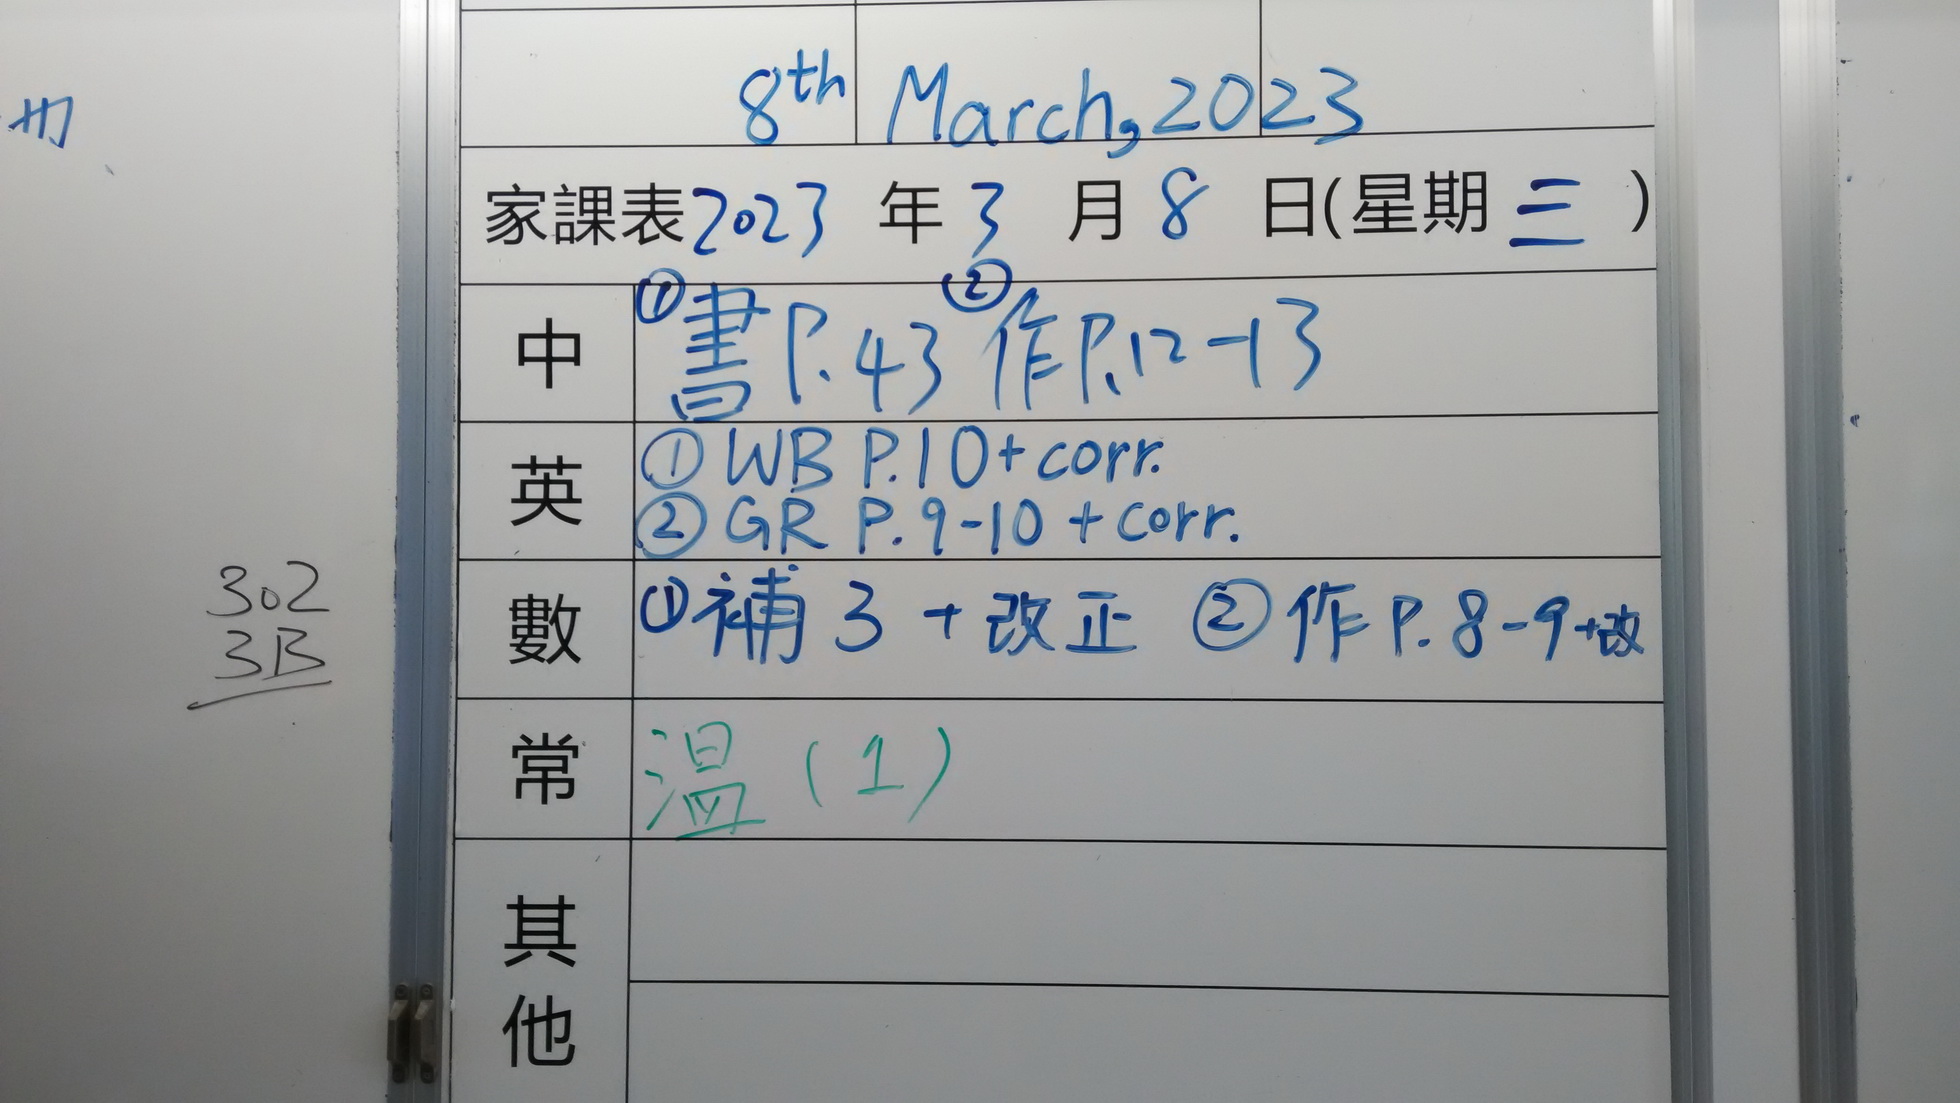 8th March, 2023
家課表2023年3月8日(星期三)
中 ①書P.43 ②作P.12-13
英 ①WB P.10+corr.
②GR P.9-10+corr.
數 ①補3+改正 ②作P.8-9+改
常 溫(1)
其他
302
3B